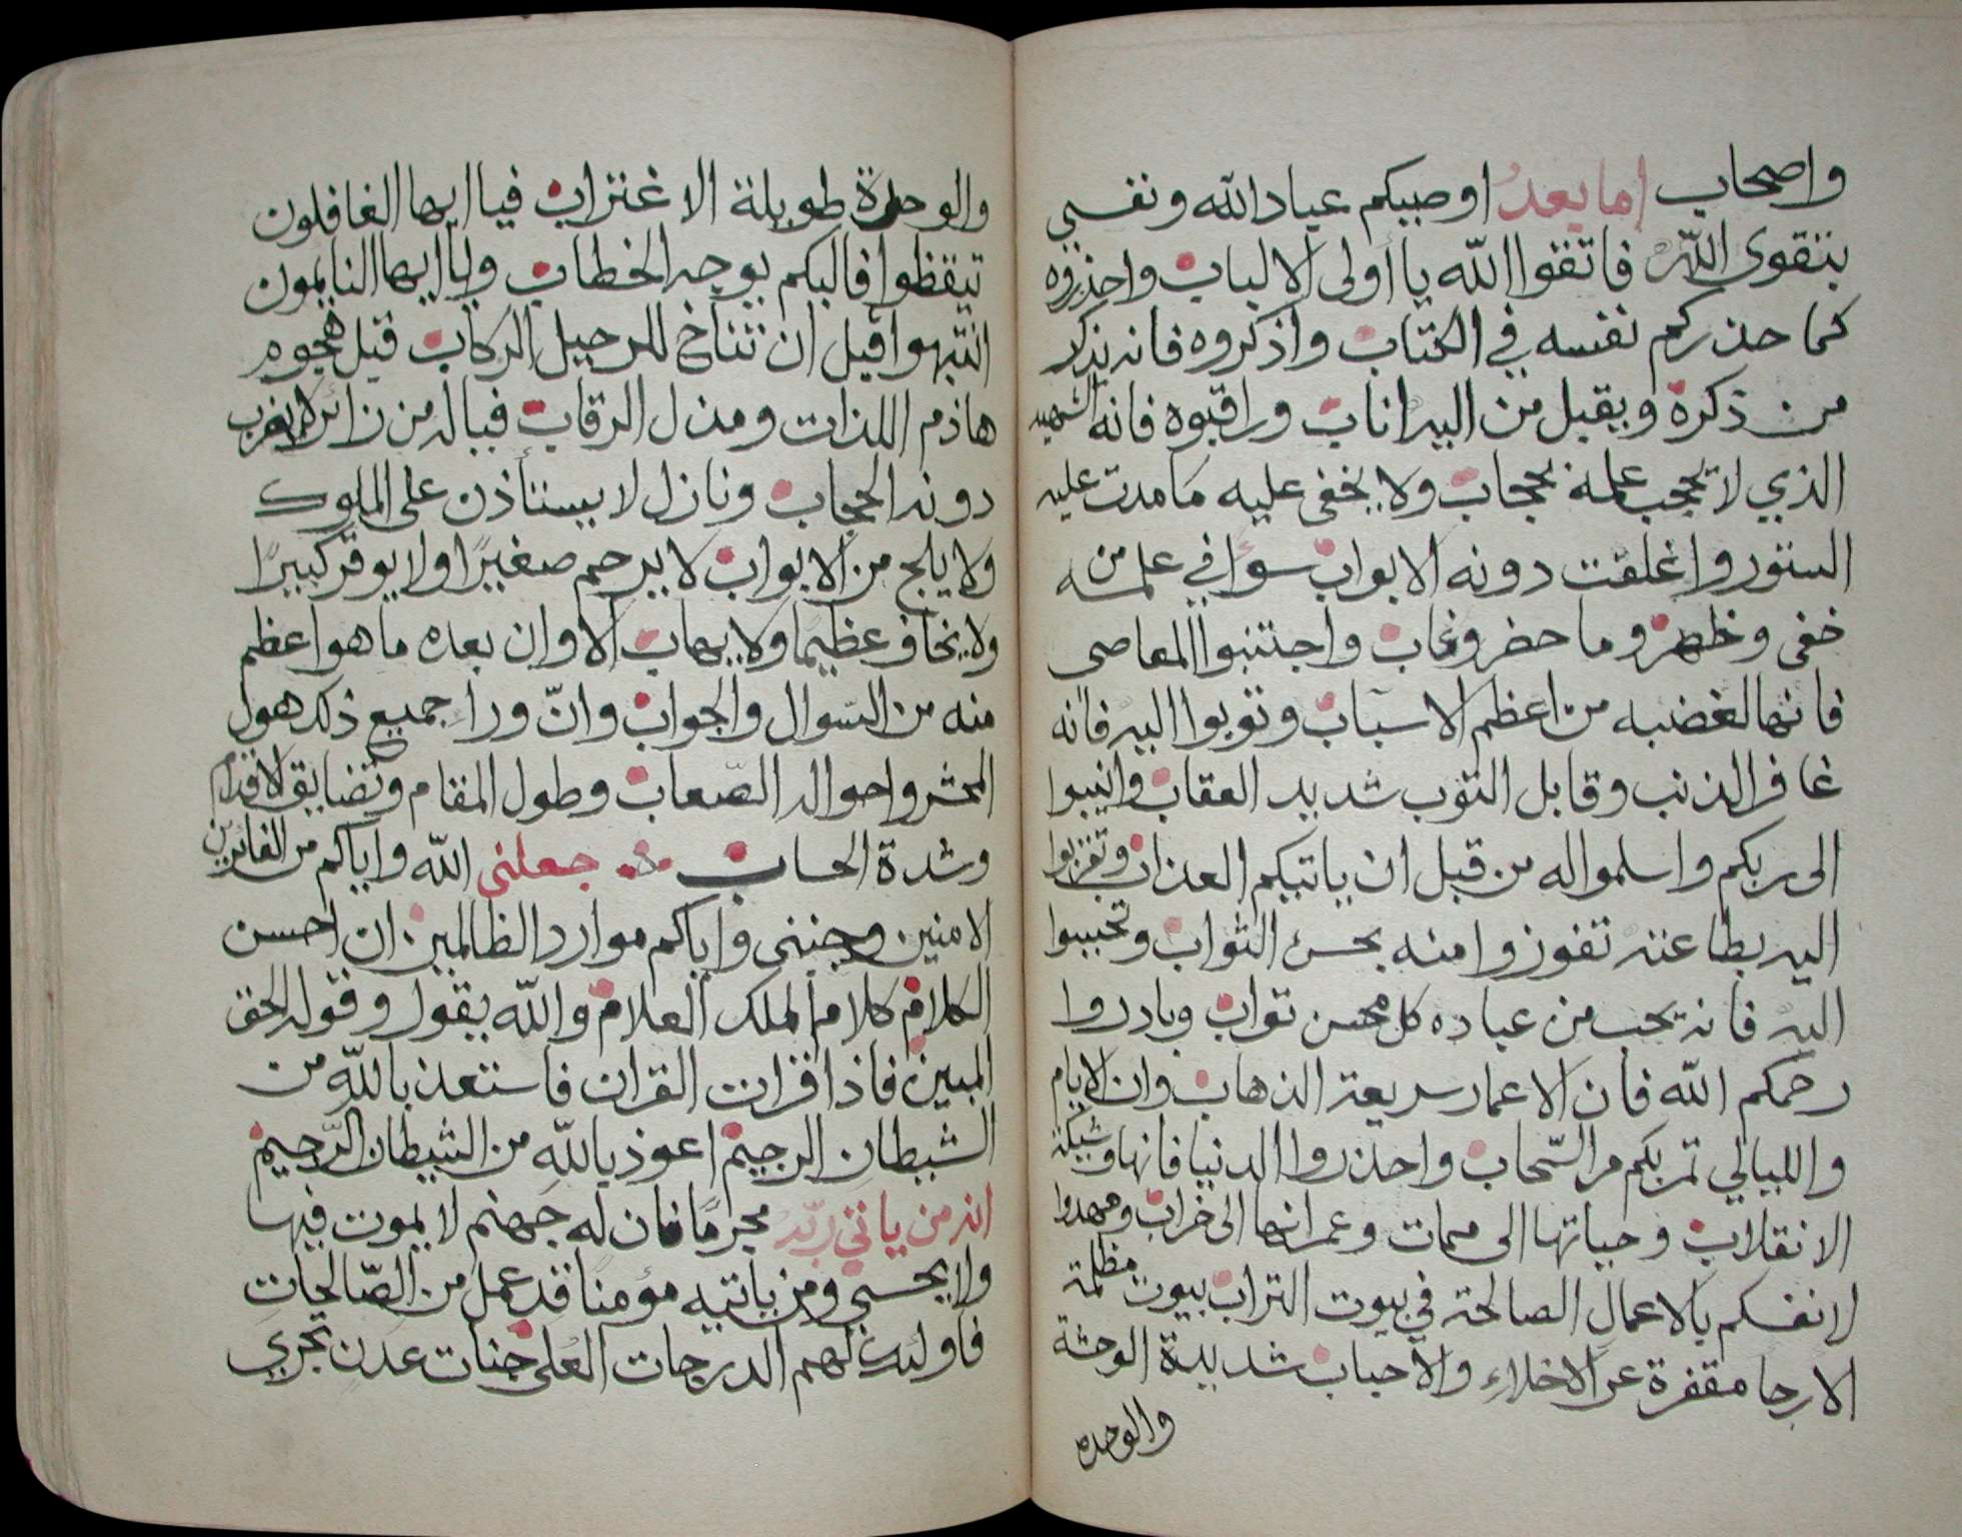 واصحاب اما بعد اوصيكم عباد الله ونفسي
بتقوى الله فاتقوا الله يا أولى الالباب واحذروه
كما حذركم نفسه في الكتاب واذكروه فانه يذكر
من ذكره ويقبل من اليه اناب وراقبوه فانه الشهيد
الذي لا تحجب علمه بحجاب ولا يخفى عليه ما مدت عليه
الستور واغلقت دونه الابواب سوا في علمه من
خفى وظهر وما حضر وغاب واجتنبوا المعاصى
فانها لغضبه من اعظم الاسباب وتوبوا اليه فانه
غافر الذنب وقابل التوب شديد العقاب وانيبوا
الى ربكم واسلموا له من قبل ان ياتيكم العذاب وتقربوا
اليه بطاعته تفوزوا منه بحسن الثواب وتحببوا
اليه فانه يحب من عباده كل محسن تواب وبادروا
رحمكم الله فان الاعمار سريعة الذهاب وان الايام
والليالي تمر بكم مر السّحاب واحذروا الدنيا فانها وشيكة
الانقلاب وحياتها الى ممات وعمرانها الى خراب ومهدوا
لانفسكم بالاعمال الصالحة في بيوت التراب بيوت مظلمة
الارجا مقفرة عن الاخلاء والاحباب شديدة الوحشة
والوحده
والوحدة طويلة الاغتراب فيا ايها الغافلون
تيقظوا فاليكم يوجه الخطاب ويا ايها النايمون
انتبهوا قبل ان تناخ للرحيل الركاب قبل هجوم
هاذم اللذات ومذل الرقاب فياله من زائر لا يضرب
دونه الحجاب ونازل لا يستأذن على الملوك
ولا يلج من الابواب لا يرحم صغيرًا ولا يوقر كبيرًا
ولا يخاف عظيما ولا يهاب الا وان بعده ما هو اعظم
منه من السّوال والجواب وانّ ورا جميع ذلك هول
المحشر واحواله الصّعاب وطول المقام وتضايق الاقدام
وشدة الحساب جعلنى الله واياكم من الفائزين
الامنين وجنبنى واياكم موارد الظالمين ان احسن
الكلام كلام الملك العلام والله يقول وقوله الحق
المبين فاذا قرات القران فاستعذ بالله من
الشيطان الرجيم اعوذ بالله من الشيطان الرّجيم
انه من ياتي ربّه مجرمًا فان له جهنم لا يموت فيها
ولا يحيى ومن ياتيه مؤمنا قد عمل من الصّالحات
فاولئك لهم الدرجات العلى جنات عدن تجري